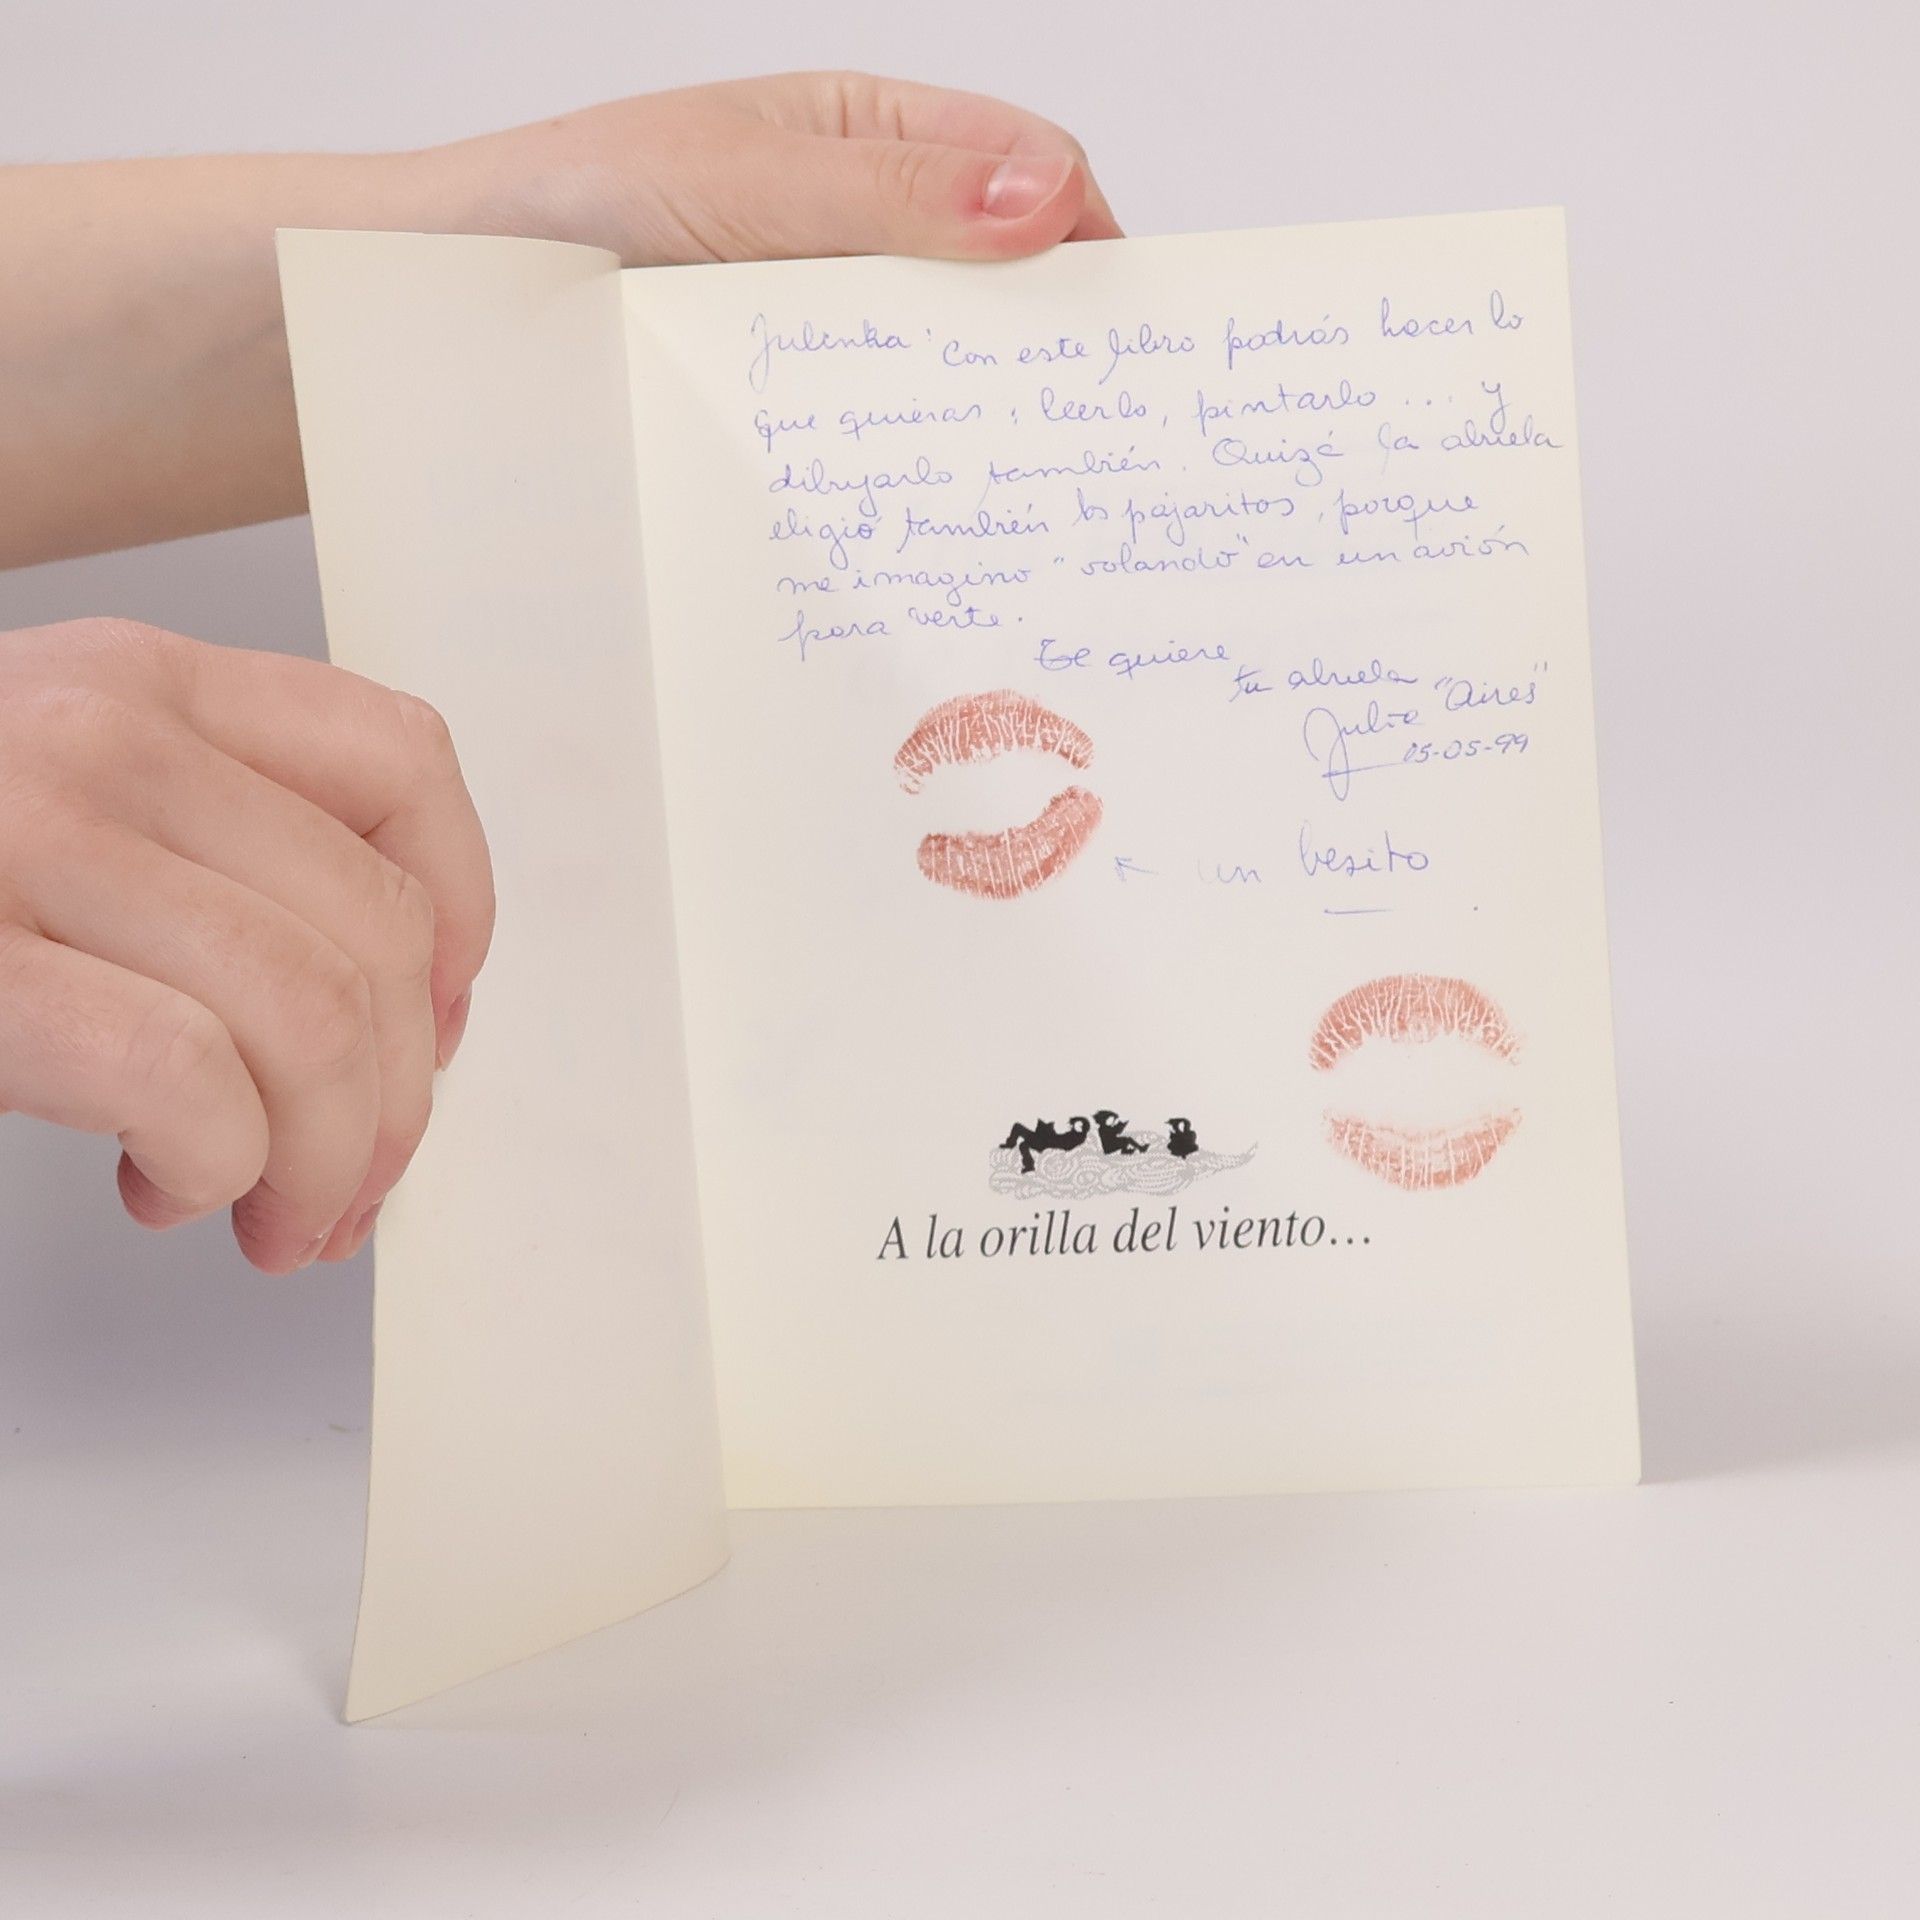 Julinka: Con este libro podrás hacer lo
que quieras: leerlo, pintarlo... y
dibujarlo también. Quizá la abuela
eligió también los pajaritos, porque
me imagino "volando" en un avión
para verte.
Te quiere
tu abuela "Aires"
Julia
15-05-99
un besito
A la orilla del viento...